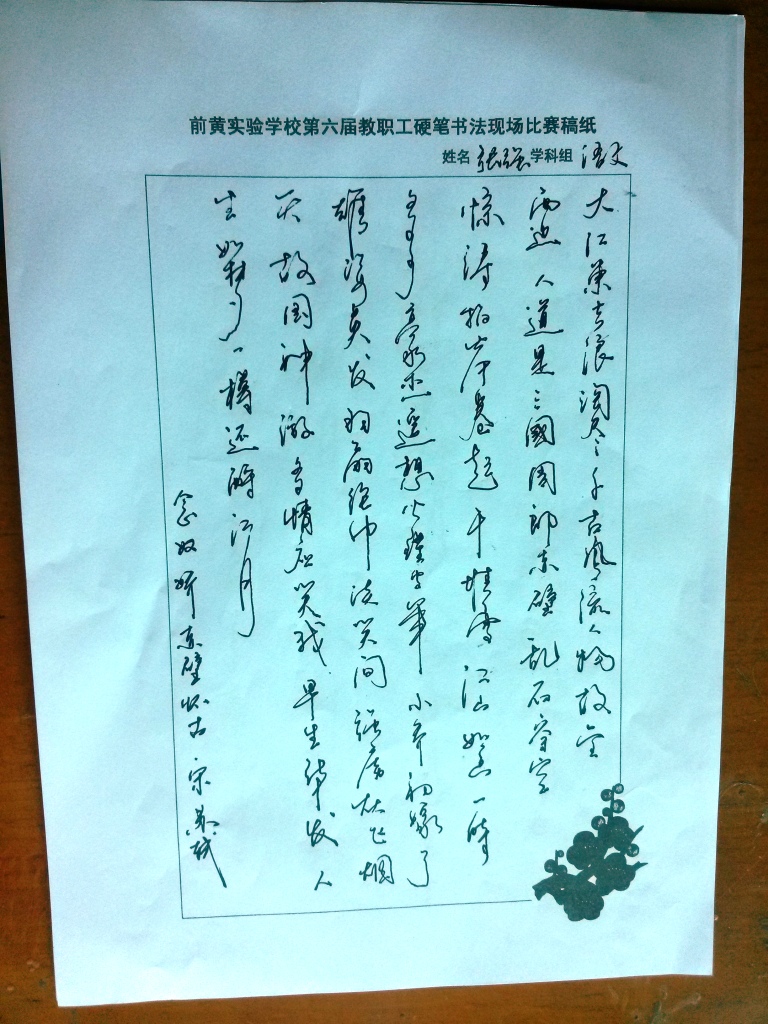 前黄实验学校第六届教职工硬笔书法现场比赛稿纸
姓名 张强 学科组 语文
大江东去浪淘尽千古风流人物故垒
西边人道是三國周郎赤壁乱石穿空
惊涛拍岸卷起千堆雪江山如画一时
多少豪杰遥想公瑾当年小乔初嫁了
雄姿英发羽扇纶巾谈笑间强虏灰飞烟
灭故国神游多情应笑我早生华发人
生如梦一樽还酹江月
念奴娇赤壁怀古 宋 苏轼